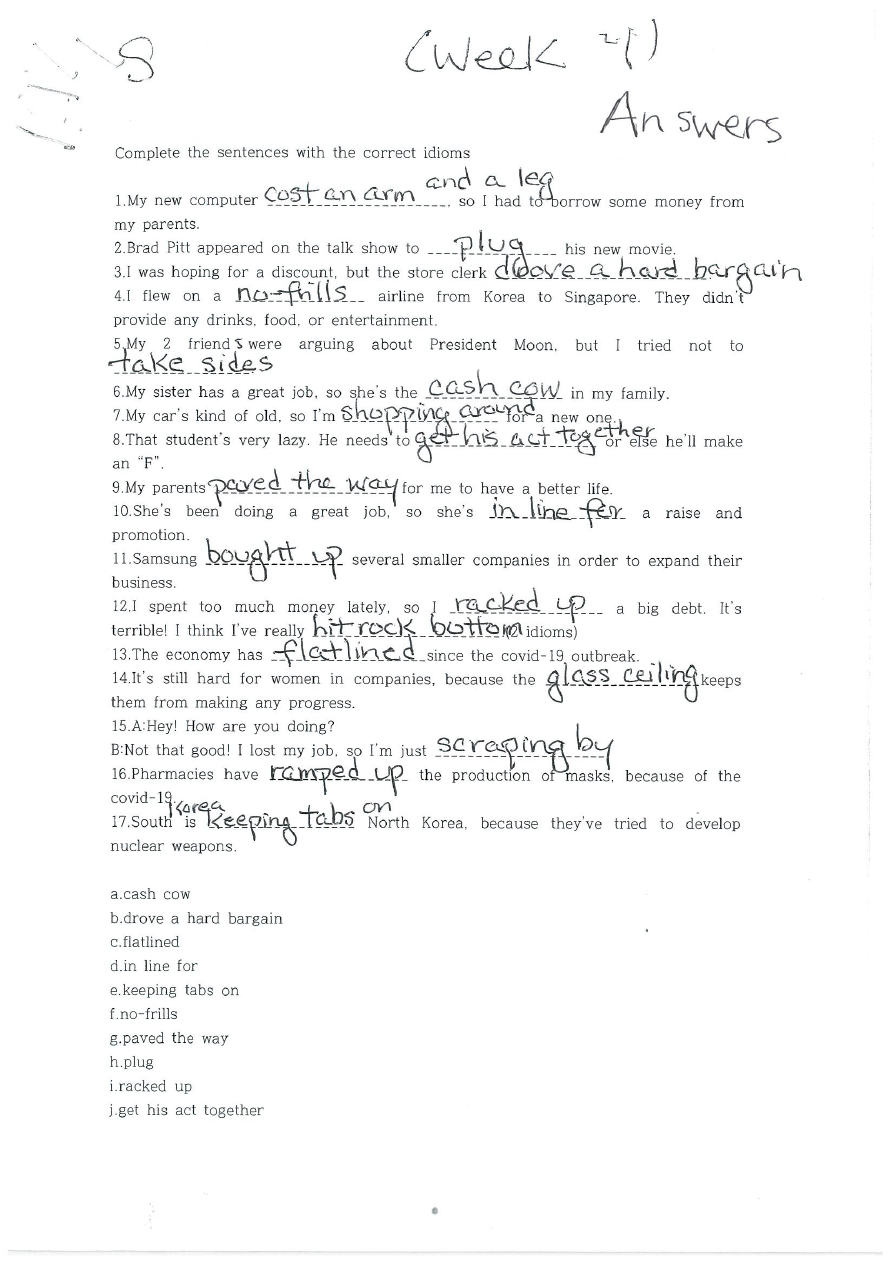 S (Week 4)
Answers
Complete the sentences with the correct idioms
and a leg
1.My new computer cost an arm, so I had to borrow some money from
my parents.
2.Brad Pitt appeared on the talk show to plug his new movie.
3.I was hoping for a discount, but the store clerk drove a hard bargain
4.I flew on a no-frills airline from Korea to Singapore. They didn't
provide any drinks, food, or entertainment.
5.My 2 friends were arguing about President Moon, but I tried not to
take sides
6.My sister has a great job, so she's the cash cow in my family.
7.My car's kind of old, so I'm shopping around for a new one.
8.That student's very lazy. He needs to get his act together or else he'll make
an "F".
9.My parents paved the way for me to have a better life.
10.She's been doing a great job, so she's in line for a raise and
promotion.
11.Samsung bought up several smaller companies in order to expand their
business.
12.I spent too much money lately, so I racked up a big debt. It's
terrible! I think I've really hit rock bottom (2 idioms)
13.The economy has flatlined since the covid-19 outbreak.
14.It's still hard for women in companies, because the glass ceiling keeps
them from making any progress.
15.A:Hey! How are you doing?
B:Not that good! I lost my job, so I'm just scraping by
16.Pharmacies have ramped up the production of masks, because of the
covid-19.
17.South Korea is keeping tabs on North Korea, because they've tried to develop
nuclear weapons.
a.cash cow
b.drove a hard bargain
c.flatlined
d.in line for
e.keeping tabs on
f.no-frills
g.paved the way
h.plug
i.racked up
j.get his act together